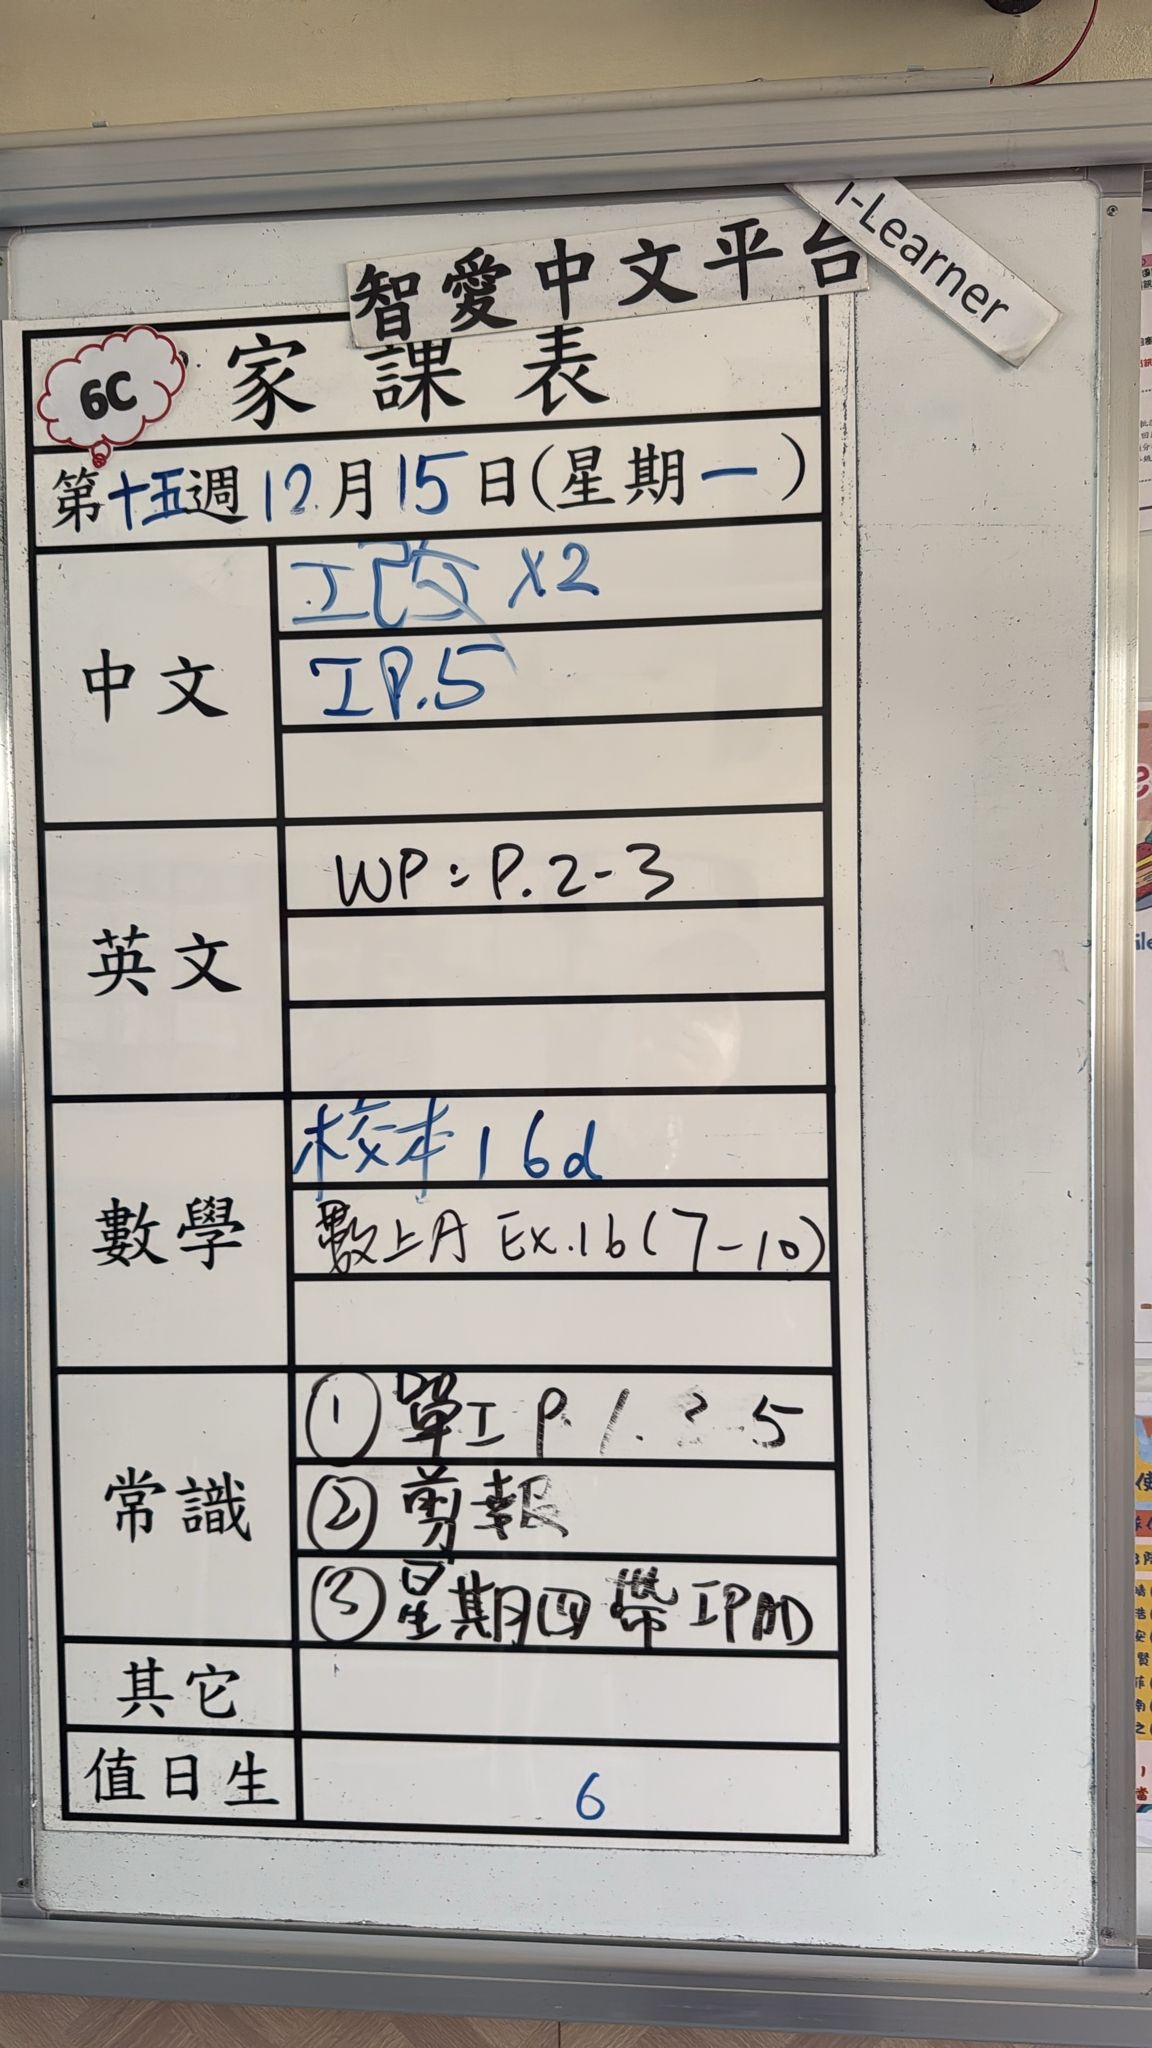 i-Learner
智愛中文平台
6C
家課表
第十五週12月15日(星期一)
中文
工改 x2
工P.5
英文
WP: P.2-3
數學
校本 16d
數上A Ex.16(7-10)
常識
① 單工 P. 1. 2 5
② 剪報
③ 星期四帶IPAD
其它
值日生
6